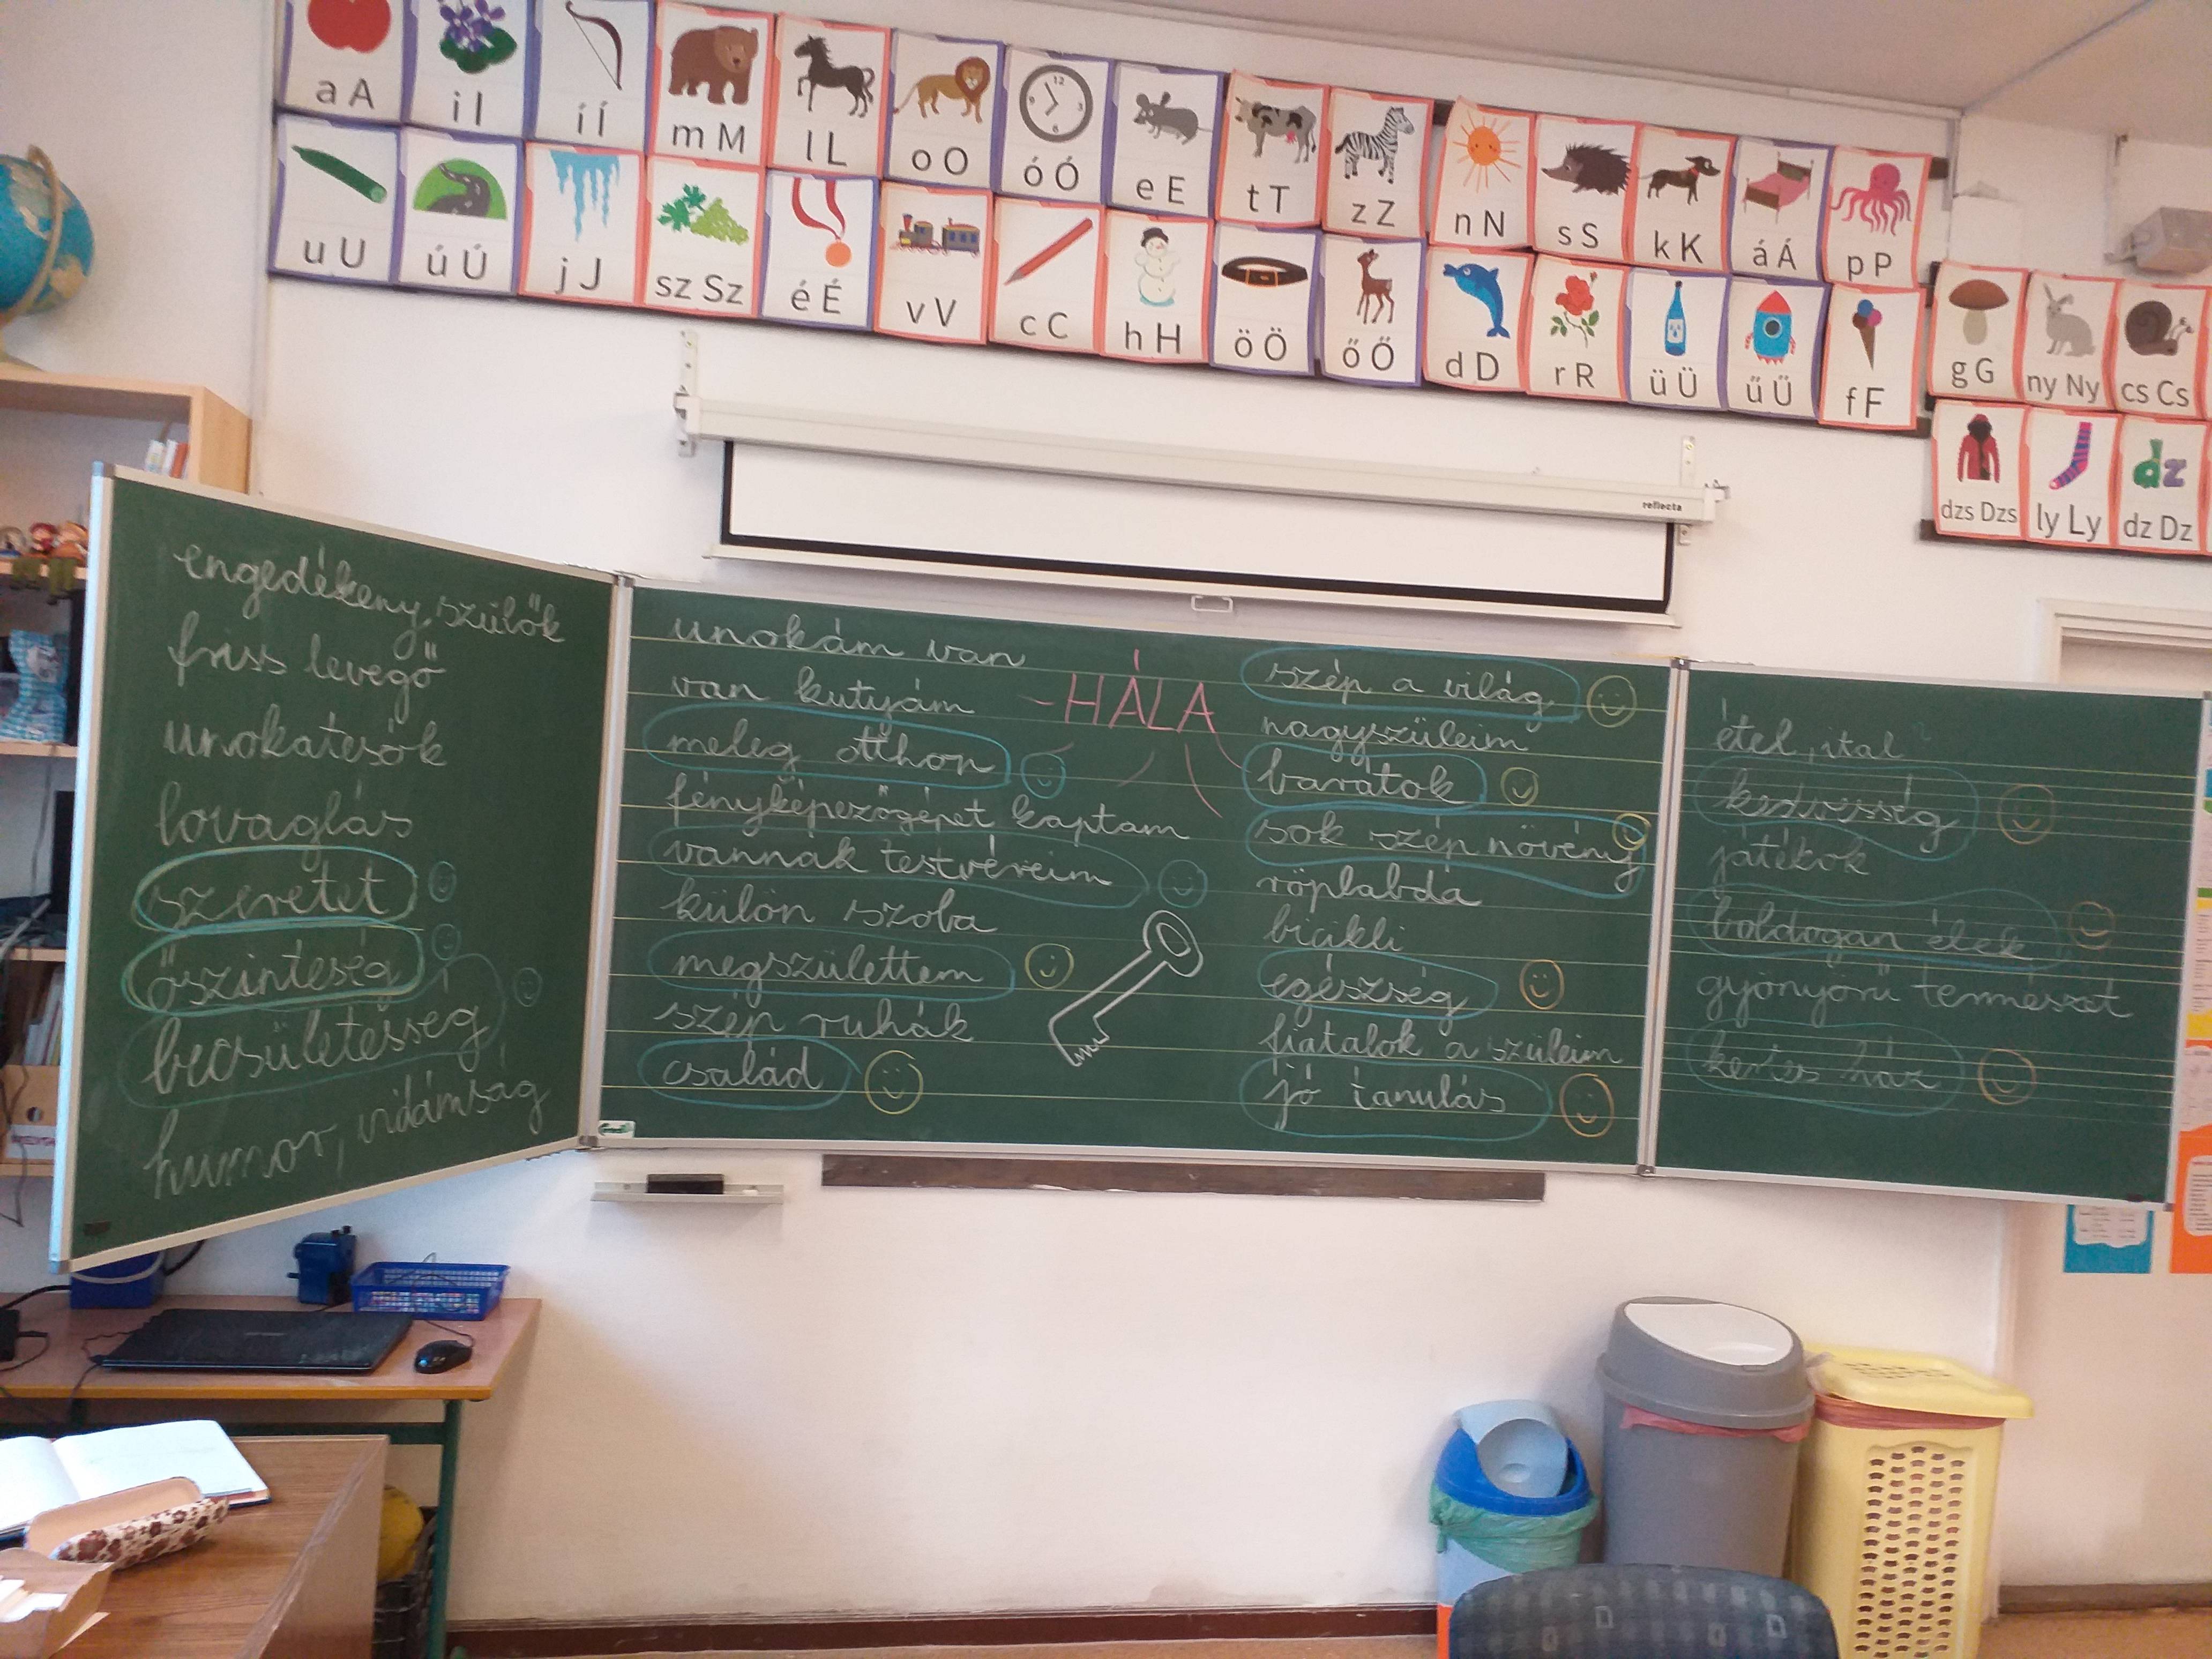 a A
i I
í Í
m M
l L
o O
ó Ó
e E
t T
z Z
n N
s S
k K
á Á
p P
u U
ú Ú
j J
sz Sz
é É
v V
c C
h H
ö Ö
ő Ő
d D
r R
ü Ü
ű Ű
f F
g G
ny Ny
cs Cs
dzs Dzs
ly Ly
dz Dz
reflecta
engedékeny szülők
friss levegő
unokatesók
lovaglás
szeretet
őszinteség
becsületesség
humor, vidámság
unokám van
van kutyám
meleg otthon
fényképezőgépet kaptam
vannak testvéreim
külön szoba
megszülettem
szép ruhák
család
HÁLA
szép a világ
nagyszüleim
barátok
sok szép növény
röplabda
bicikli
egészség
fiatalok a szüleim
jó tanulás
étel, ital
kedvesség
játékok
boldogan élek
gyönyörű természet
kertes ház